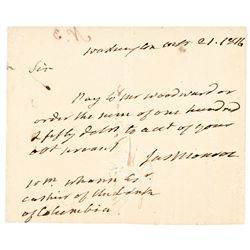 No 3
Washington 21. 1816
Sir
Pay to Mr Woodward or
order the sum of one hundred
& fifty dolrs to acct of your
obt servant
Jas Monroe
Wm Whann Esqr
cashier of the Bank
of Columbia